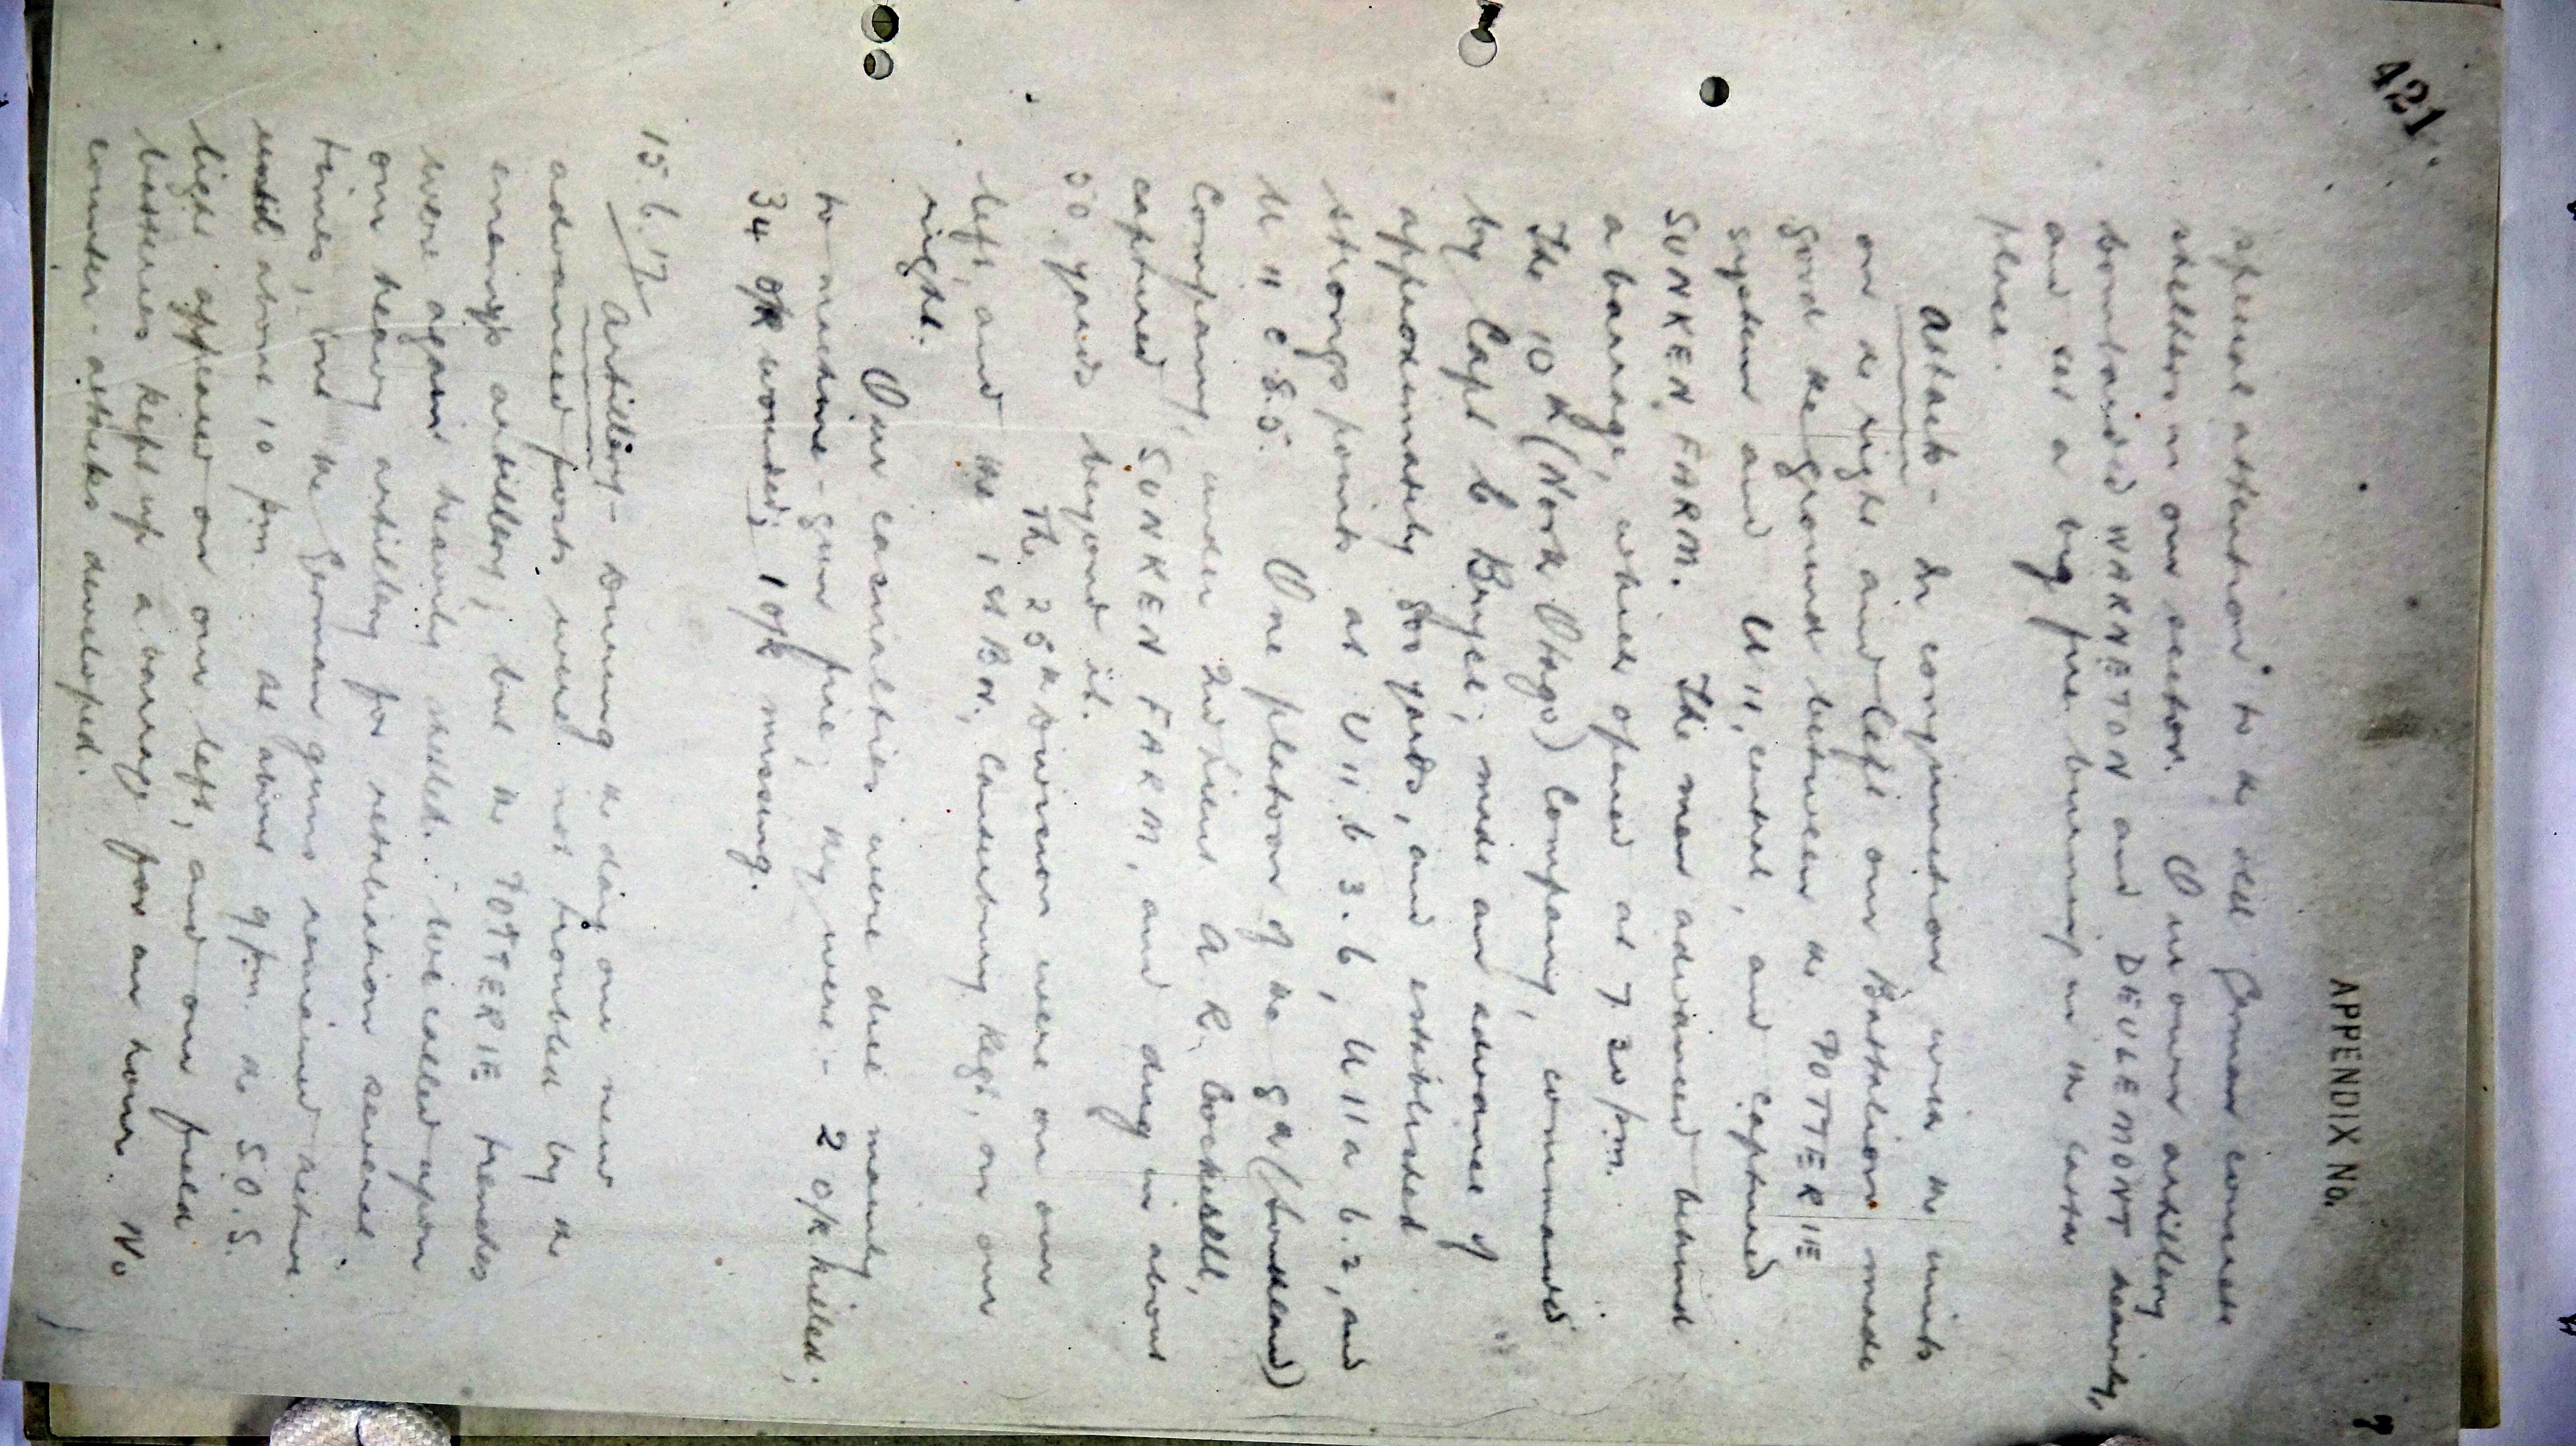 421.
APPENDIX No. 7
special attention to the old German concrete
shelters in our sector. Our own artillery
bombarded WARNETON and DEULEMONT heavily,
and set a big fire burning in the latter
place.
Attack - In conjunction with the units
on the right and left our Battalion made
good the ground between the POTTERIE
system and U 11, central, and captured
SUNKEN FARM. The men advanced behind
a barrage, which opened at 7.30 pm.
The 10th (North Otago) Company, commanded
by Capt C Bryce, made an advance of
approximately 800 yards, and established
strong points at U 11 b 3.6, U 11 a 6.2, and
U 11 c 8.5. One platoon of the 8th (Southland)
Company, under 2nd Lieut A R. Cockerell,
captured SUNKEN FARM, and dug in about
50 yards beyond it.
The 25th Division were on our
left, and the 1st Bn, Canterbury Regt, on our
right.
Our casualties were due mainly
to machine-gun fire; they were - 2 o/R killed;
34 o/R wounded; 1 o/R missing.
15.6.17 Artillery - During the day our new
advanced posts were not troubled by the
enemy's artillery; but the POTTERIE trenches
were again heavily shelled. We called upon
our heavy artillery for retaliation several
times, but the German guns remained active
until about 10 pm. At about 9 pm. the S.O.S.
light appeared on our left, and our field
batteries kept up a barrage for an hour. No
counter-attacks developed.